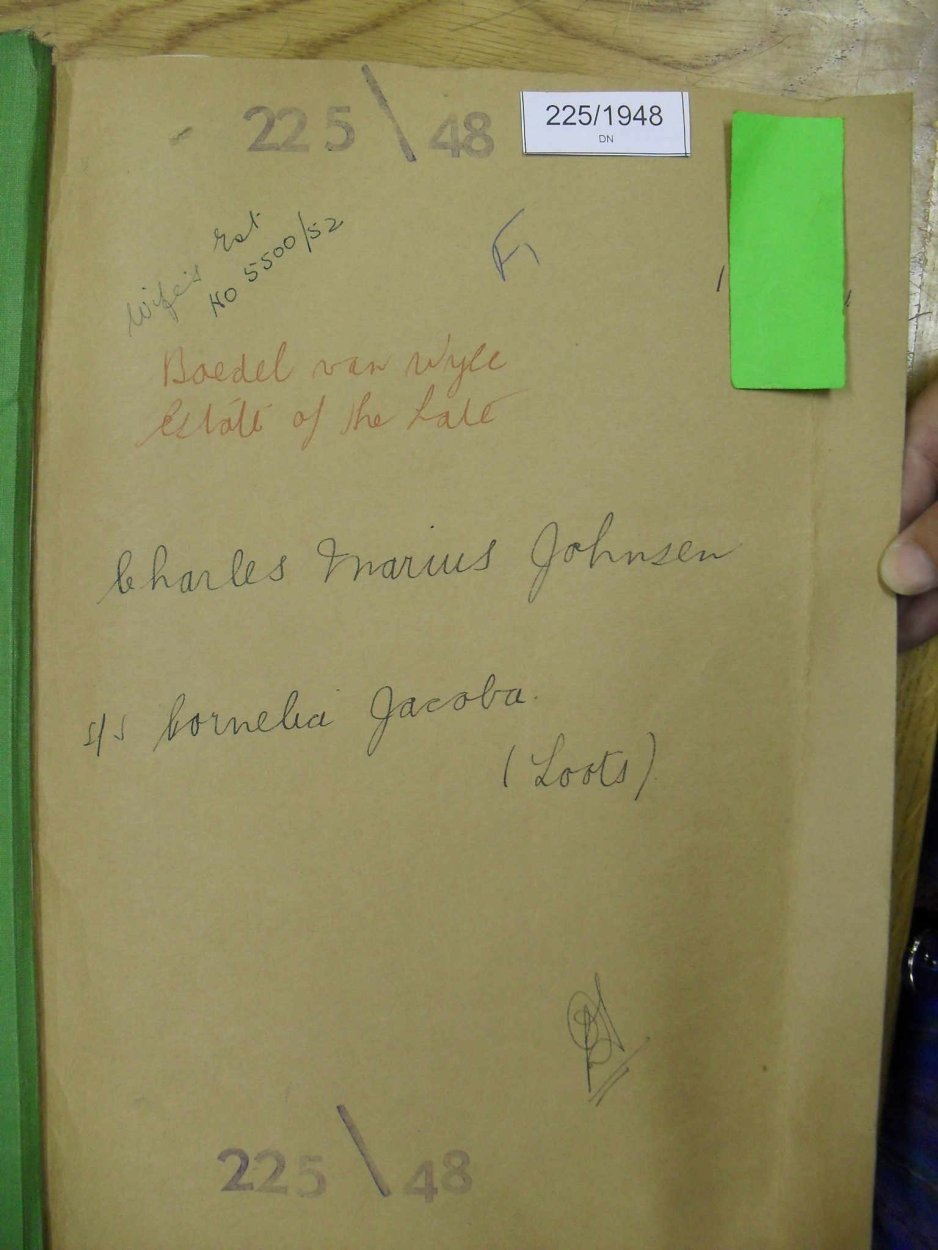 225 \ 48
225/1948
DN
Wife's Est
No 5500/52
F,
Boedel van Wyle
Estate of the Late
Charles Marius Johnsen
s/s Cornelia Jacoba.
(Loots)
225 \ 48